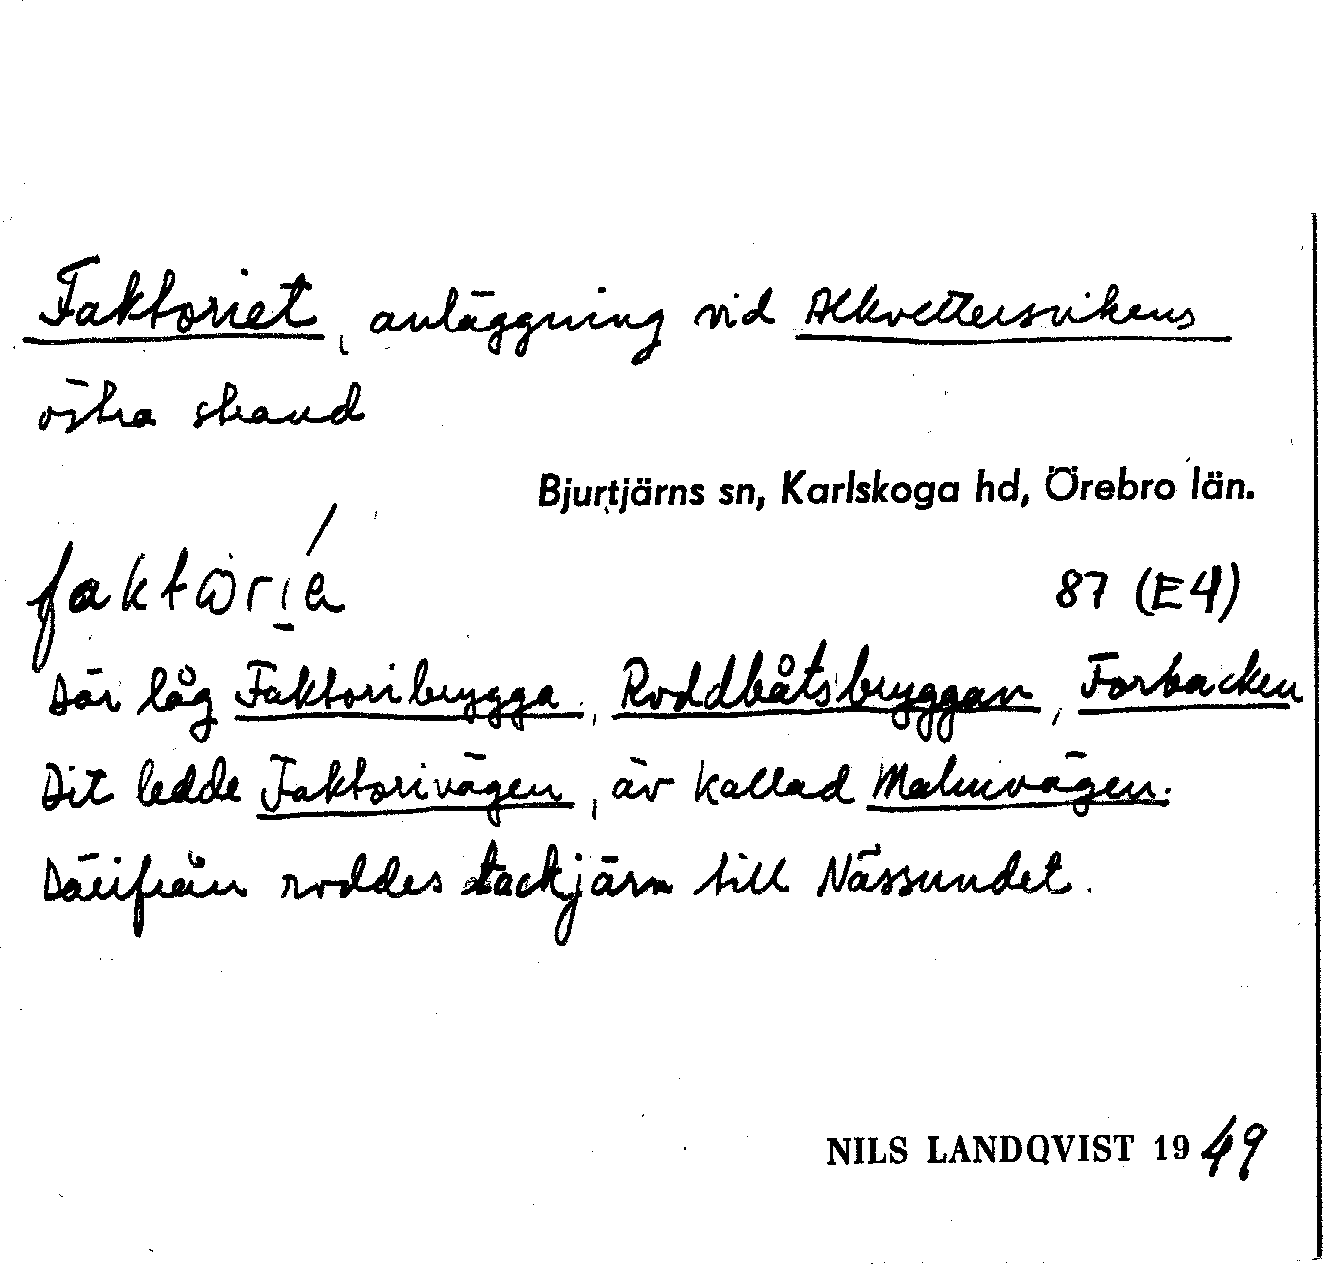 Faktoriet, anläggning vid Alkvettersvikens
östra strand
Bjurtjärns sn, Karlskoga hd, Örebro län.
faktωri̱é
87 (E4)
Där låg Faktoribrygga, Roddbåtsbryggan, Forbacken
Dit ledde Faktorivägen, äv kallad Malmvägen.
Därifrån roddes tackjärn till Nässundet.
NILS LANDQVIST 1949